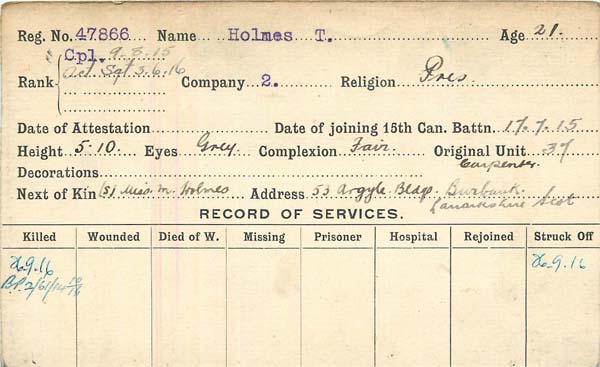 Reg. No. 47866 Name Holmes T. Age 21.
Cpl. 9.8.15
Rank Act Sgt 3.6.16 Company 2. Religion Pres.
Date of Attestation Date of joining 15th Can. Battn. 17.7.15
Height 5-10. Eyes Grey. Complexion Fair. Original Unit 37
Decorations Carpenter.
Next of Kin (S) Miss. M. Holmes Address 53 Argyle Bldgs. Burbank
Lanarkshire Scot
RECORD OF SERVICES.
Killed Wounded Died of W. Missing Prisoner Hospital Rejoined Struck Off
26.9.16 26.9.16